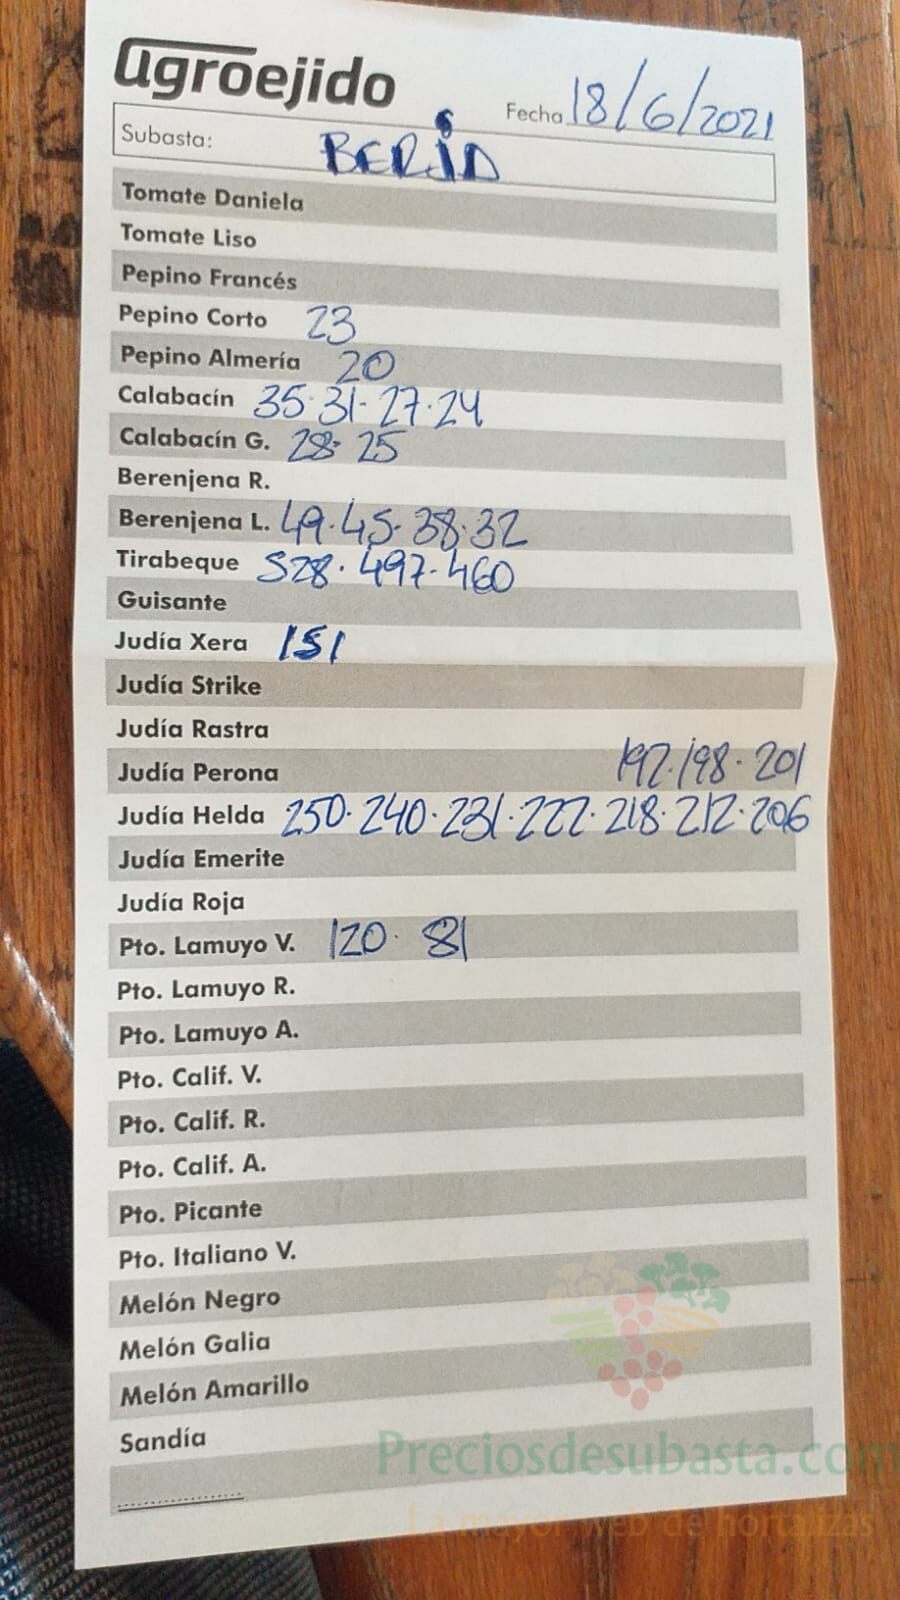 agroejido
Fecha 18/6/2021
Subasta: BERJA
Tomate Daniela
Tomate Liso
Pepino Francés
Pepino Corto 23
Pepino Almería 20
Calabacín 35·31·27·24
Calabacín G. 28·25
Berenjena R.
Berenjena L. 49·45·38·32
Tirabeque 528·497·460
Guisante
Judía Xera 151
Judía Strike
Judía Rastra
Judía Perona 192·198·201
Judía Helda 250·240·231·222·218·212·206
Judía Emerite
Judía Roja
Pto. Lamuyo V. 120·81
Pto. Lamuyo R.
Pto. Lamuyo A.
Pto. Calif. V.
Pto. Calif. R.
Pto. Calif. A.
Pto. Picante
Pto. Italiano V.
Melón Negro
Melón Galia
Melón Amarillo
Sandía
Preciosdesubasta.com
La mayor web de hortalizas